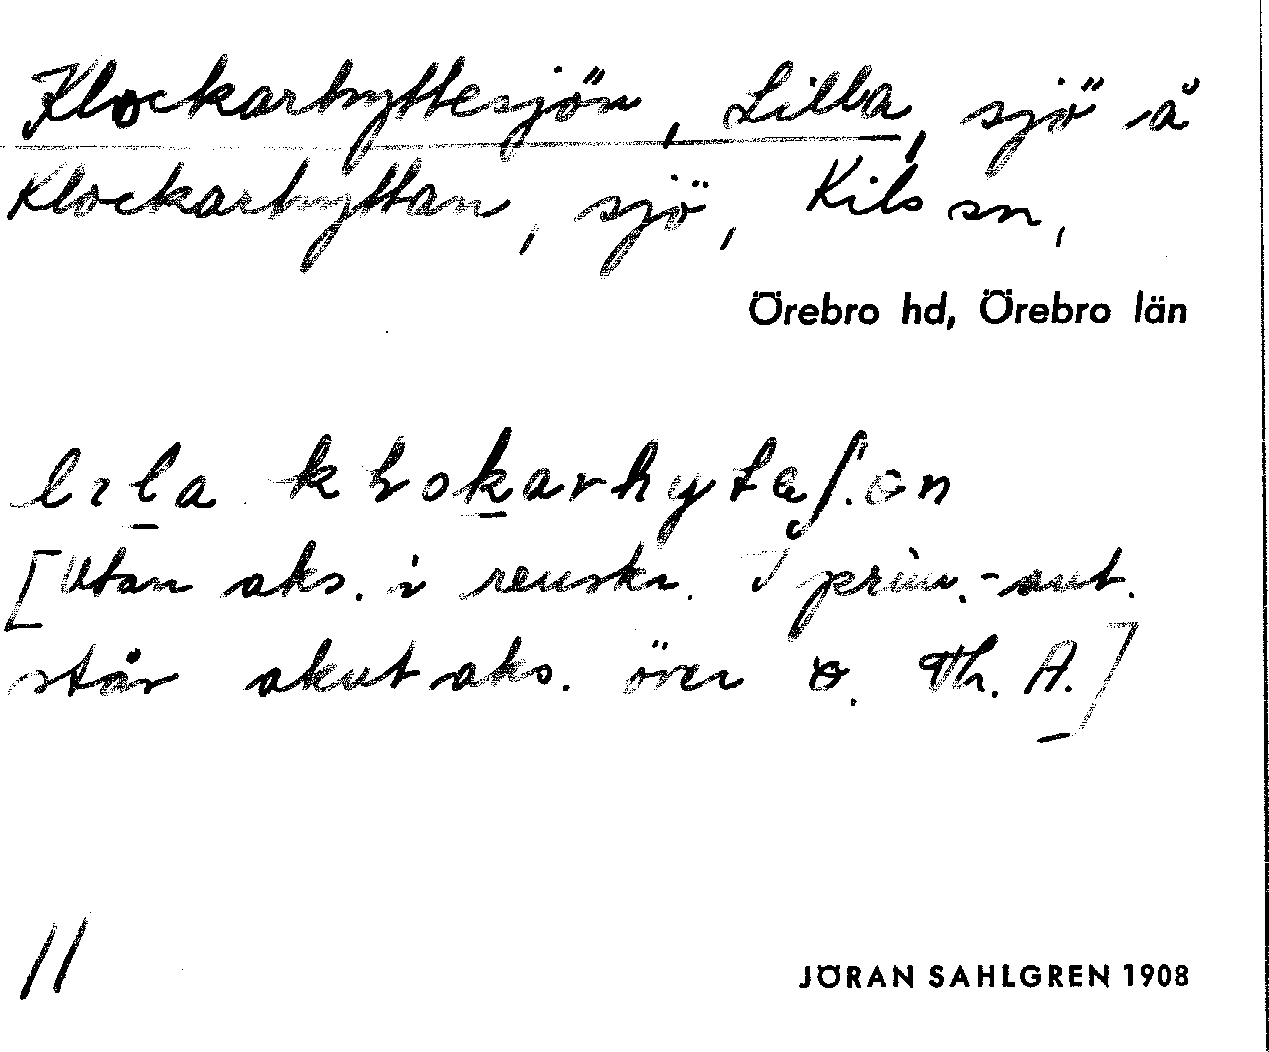 Klockarhyttesjön, Lilla, sjö å
Klockarhyttan, sjö, Kils sn,
Örebro hd, Örebro län
lila
[Utan aks. i renskr. I prim.-ant.
står akut aks. över ɷ. Th. A.]
11
JÖRAN SAHLGREN 1908